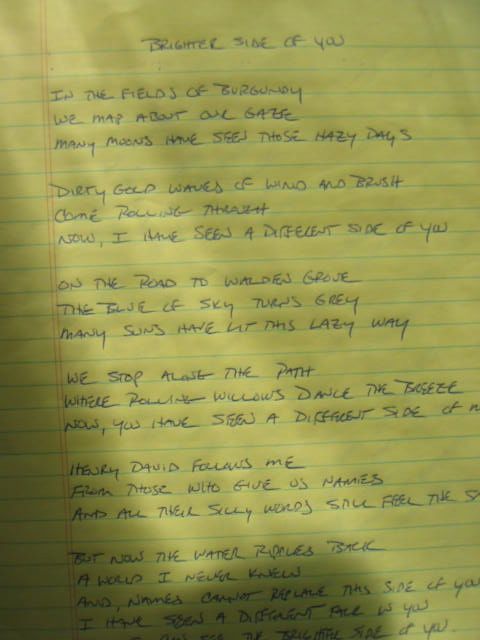 BRIGHTER SIDE OF YOU
IN THE FIELDS OF BURGUNDY
WE MAP ABOUT OUR GAZE
MANY MOONS HAVE SEEN THOSE HAZY DAYS
DIRTY GOLD WAVES OF WIND AND BRUSH
COME ROLLING THROUGH
NOW, I HAVE SEEN A DIFFERENT SIDE OF YOU
ON THE ROAD TO WALDEN GROVE
THE BLUE OF SKY TURNS GREY
MANY SUNS HAVE LIT THIS LAZY WAY
WE STOP ALONG THE PATH
WHERE ROLLING WILLOWS DANCE THE BREEZE
NOW, YOU HAVE SEEN A DIFFERENT SIDE OF
HENRY DAVID FOLLOWS ME
FROM THOSE WHO GIVE US NAMES
AND ALL THEIR SILLY WORDS STILL FEEL THE
BUT NOW THE WATER RIPPLES BACK
A WORLD I NEVER KNEW
AND, NAMES CANNOT REPLACE THIS SIDE OF YOU
I HAVE SEEN A DIFFERENT FACE IN YOU
THE BRIGHTER SIDE OF YOU.